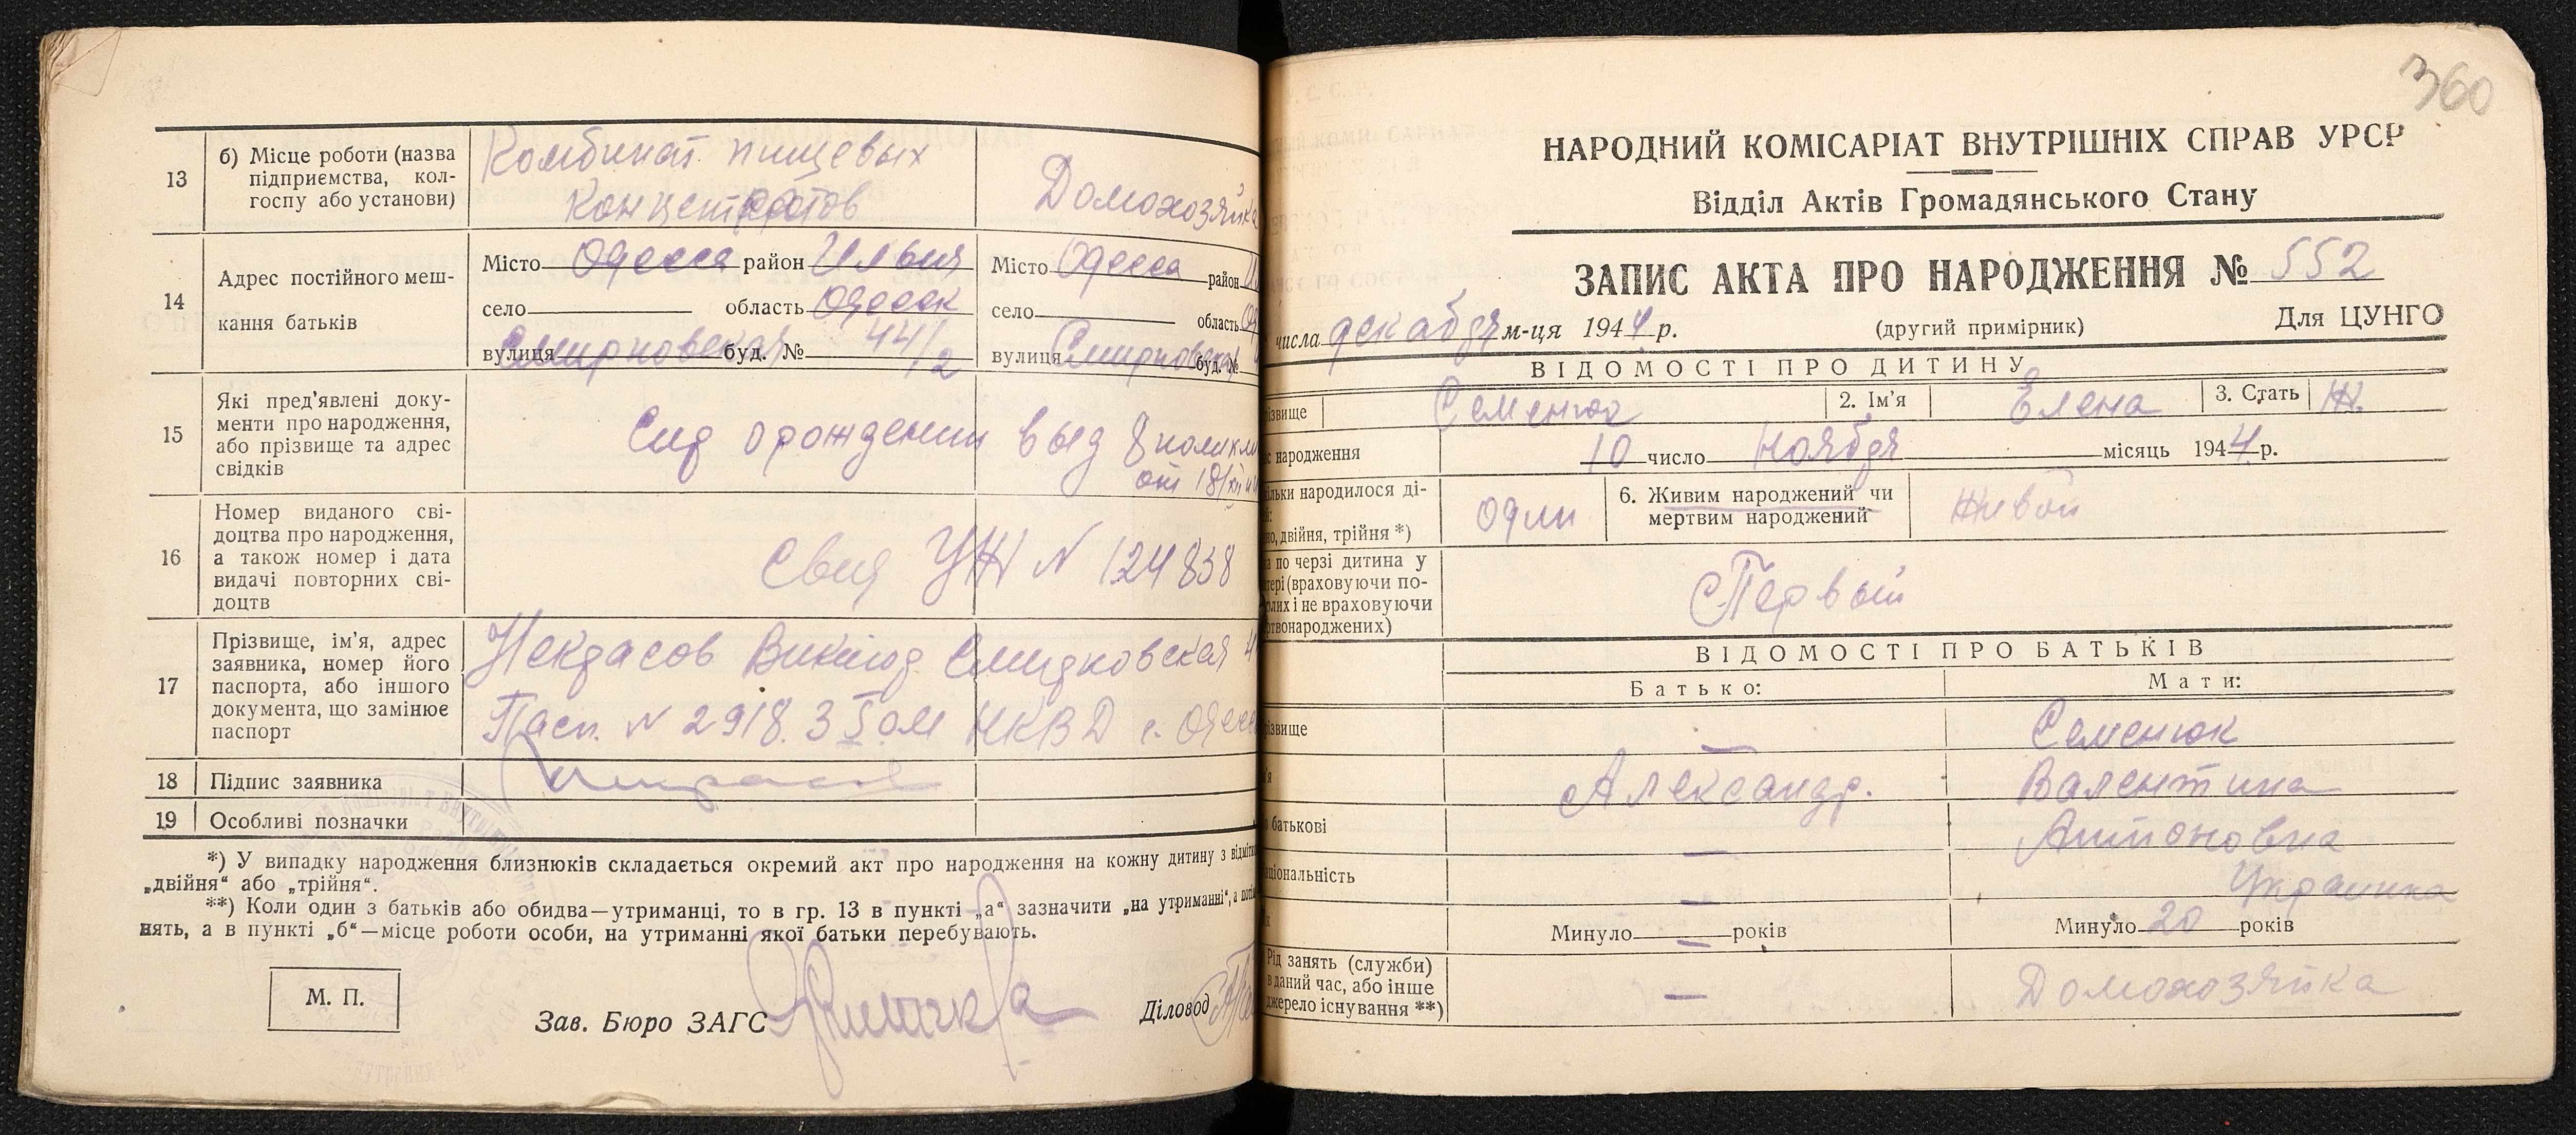 13
б) Місце роботи (назва підприємства, колгоспу або установи)
Комбинат пищевых
концентратов
Домохозяйка
14
Адрес постійного мешкання батьків
Місто Одесса район Ильич
село область Одесск
вулиця Смирновская буд. № 44/2
Місто Одесса район
село область
вулиця Смирновская буд. №
15
Які пред'явлені документи про народження, або прізвище та адрес свідків
о рождении выд 8 поликли
от 18/XII
16
Номер виданого свідоцтва про народження, а також номер і дата видачі повторних свідоцтв
Свид УЖ N 124838
17
Прізвище, ім'я, адрес заявника, номер його паспорта, або іншого документа, що замінює паспорт
Некрасов Виктор Смирновская 4
Пасп. N 2918. 3 ом НКВД г. Одесс
18 Підпис заявника
19 Особливі позначки
*) У випадку народження близнюків складається окремий акт про народження на кожну дитину з відмітк
„двійня“ або „трійня“.
**) Коли один з батьків або обидва—утриманці, то в гр. 13 в пункті „а“ зазначити „на утриманні“, а
нять, а в пункті „б“—місце роботи особи, на утриманні якої батьки перебувають.
М. П.
Зав. Бюро ЗАГС
Діловод
360
НАРОДНИЙ КОМІСАРІАТ ВНУТРІШНІХ СПРАВ УРСР
Відділ Актів Громадянського Стану
ЗАПИС АКТА ПРО НАРОДЖЕННЯ № 552
числа декабря м-ця 1944 р.
(другий примірник)
Для ЦУНГО
ВІДОМОСТІ ПРО ДИТИНУ
ізвище Семенюк 2. Ім'я Елена 3. Стать Ж.
с народження 10 число ноября місяць 1944 р.
ільки народилося ді-
о, двійня, трійня *)
один
6. Живим народжений чи
мертвим народжений
Живой
а по черзі дитина у
тері (враховуючи по-
рлих і не враховуючи
ртвонароджених)
Первый
ВІДОМОСТІ ПРО БАТЬКІВ
Батько: Мати:
ізвище — Семенюк
м'я Александр. Валентина
о батькові — Антоновна
ціональність — Украинка
Минуло — років Минуло 20 років
Рід занять (служби)
в даний час, або інше
джерело існування **)
— Домохозяйка